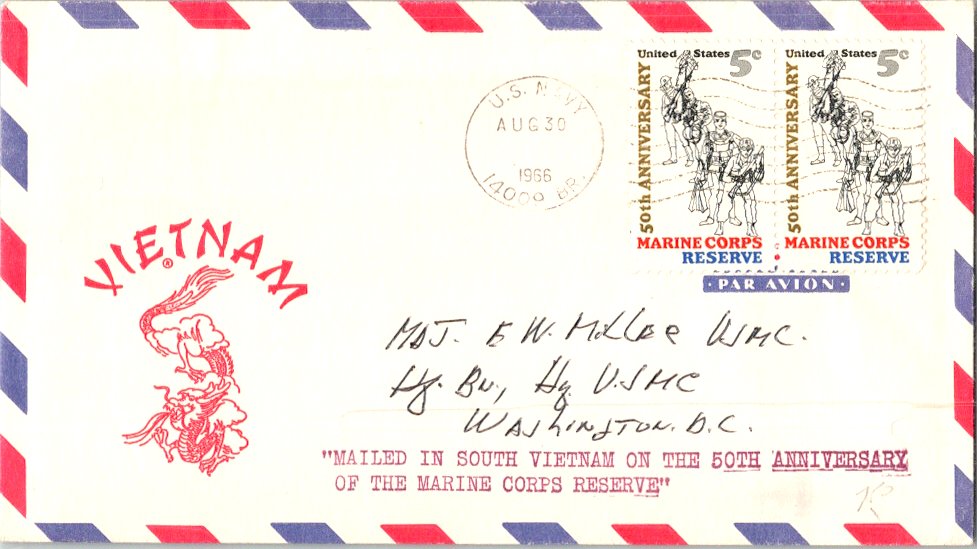 VIETNAM
®
U.S. NAVY
AUG 30
1966
14009 BR.
United States 5c
50th ANNIVERSARY
MARINE CORPS
RESERVE
United States 5c
50th ANNIVERSARY
MARINE CORPS
RESERVE
· PAR AVION ·
MAJ. E W. USMC.
Hq. Bn, Hq USMC
WASHINGTON. D.C.
"MAILED IN SOUTH VIETNAM ON THE 50TH ANNIVERSARY
OF THE MARINE CORPS RESERVE"